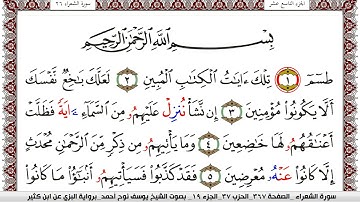 الجزء التاسع عشر
سورة الشعراء ٢٦
بِسْمِ اللَّهِ الرَّحْمَٰنِ الرَّحِيمِ
طسٓمٓ ١ تِلْكَ ءَايَٰتُ الْكِتَٰبِ الْمُبِينِ ٢ لَعَلَّكَ بَٰخِعٌ نَّفْسَكَ
أَلَّا يَكُونُوا۟ مُؤْمِنِينَ ٣ إِن نَّشَأْ نُنزِلْ عَلَيْهِمُۥ مِنَ السَّمَآءِ ءَايَةً فَظَلَّتْ
أَعْنَٰقُهُمُۥ لَهَا خَٰضِعِينَ ٤ وَمَا يَأْتِيهِمُۥ مِن ذِكْرٍ مِّنَ الرَّحْمَٰنِ مُحْدَثٍ
إِلَّا كَانُوا۟ عَنْهُۥ مُعْرِضِينَ ٥ فَقَدْ كَذَّبُوا۟ فَسَيَأْتِيهِمُۥ أَنۢبَٰٓؤُا۟ مَا كَانُوا۟
سورة الشعراء _ الصفحة ٣٦٧ _ الحزب ٣٧ _ الجزء ١٩ _ بصوت الشيخ يوسف نوح أحمد _ برواية البزي عن ابن كثير